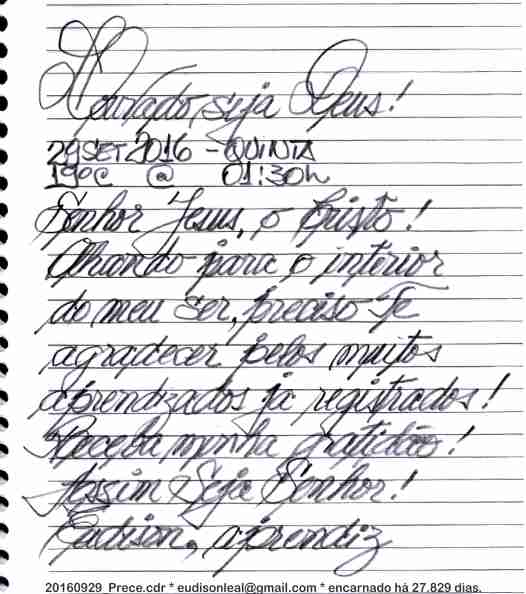 Honrado seja Deus!
29 SET 2016 - QUINTA
19ºC @ 01:30h
Senhor Jesus, o Cristo!
Olhando para o interior
do meu ser, preciso Te
agradecer pelos muitos
aprendizados já registrados!
Receba minha gratidão!
Assim Seja Senhor!
Eudison, aprendiz
20160929_Prece.cdr * eudisonleal@gmail.com * encarnado há 27.829 dias.